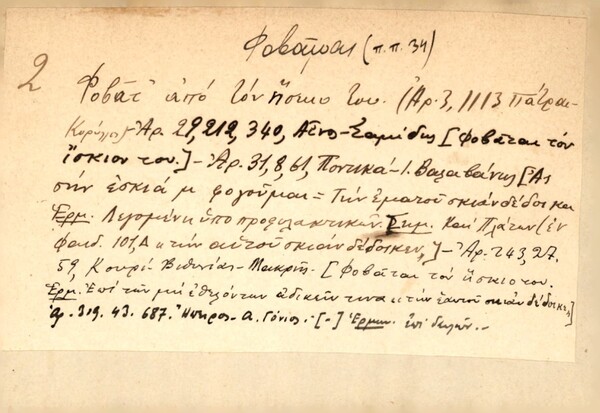 Φοβᾶμαι (π.π. 34)
2
Φοβᾶτ' ἀπό τὸν ἤσκιο του. (Ἀρ. 3, 1113 Πάτραι-
Κορύλλος - Ἀρ. 29, 212, 340, Αἶνος - Σαμίδης [Φοβᾶται τὸν
ἴσκιον του.] - Ἀρ. 31, 8, 61, Ποντικά - Ι. Βαλαβάνης [Ἀς
σὴν ἐσκιά μ φογοῦμαι = Τὴν ἐματοῦ σκιὰν δέδοικα
Ἑρμ. Λεγομένη ὑπὸ προφυλακτικῶν. Σημ. Καὶ Πλάτων (ἐν
Φαιδ. 101, Δ "τὴν αὑτοῦ σκιὰν δέδοικεν,,] - Ἀρ. 243, 27.
59, Κουρί Βιθυνίας - Μακρῆς. [Φοβᾶται τὸν ἤσκιο του.
Ἑρμ. Ἐπὶ τῶν μὴ ἐθελόντων ἀδικεῖν τινα "τὴν ἑαυτοῦ σκιὰν δέδοικε,,]
Ἀρ. 319. 43. 687. Ἤπειρος - Α. Γόνιος. [-] Ἑρμην. ἐπὶ δειλῶν. -